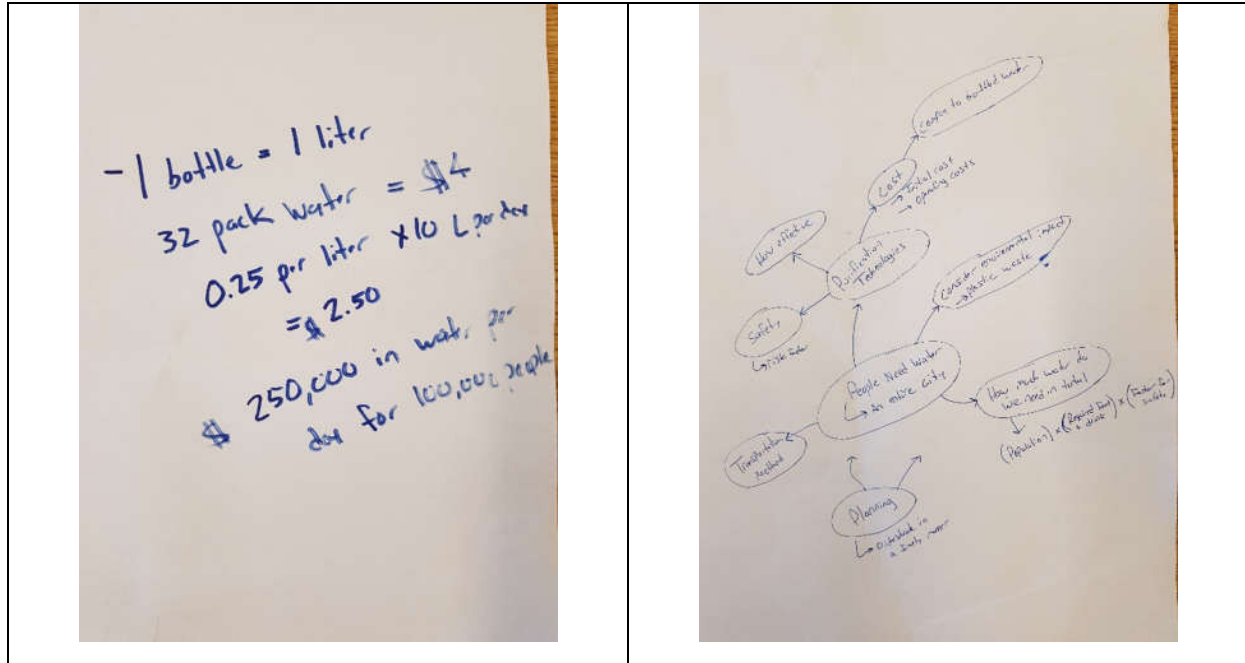 - 1 bottle = 1 liter
32 pack water = $4
0.25 per liter x10 L per day
= $ 2.50
$ 250,000 in water per
day for 100,000 people
to bottled water
Cost
→ Initial cost
→ operating costs
How effective
Purification
Technologies
Consider environmental impact
→ plastic waste
Safety
↳ risk factor
People Need Water
↳ An entire city
How much water do
we need in total
(Population) x (Required food & drink) x (Factor for safety)
Transportation
method
Planning
↳ Distribute in
a timely manner